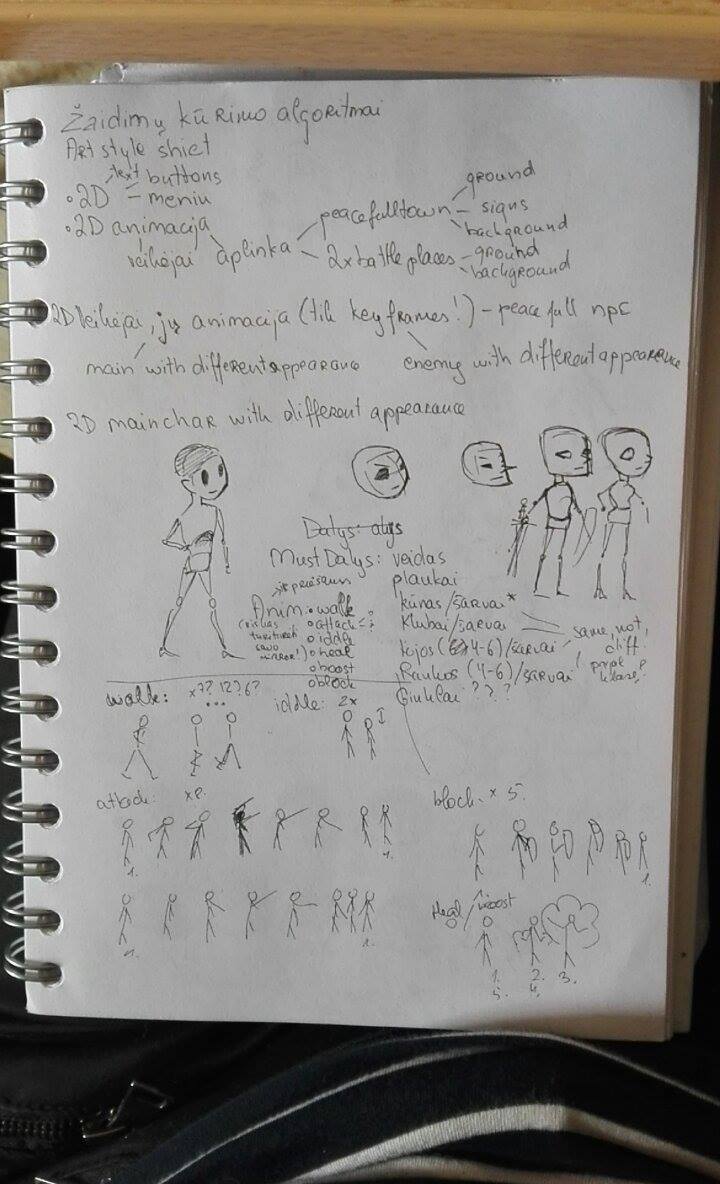 Žaidimų kūrimo algoritmai
Art style shiet
text buttons
• 2D – meniu
• 2D animacija
veikėjai aplinka
peacefull town – signs
ground
background
2x battle places – ground
background
2D Veikėjai, jų animacija (tik key frames!) – peacefull npc
main with different appearance
enemy with different appearance
2D main char with different appearance
Dalys:
Must Dalys: veidas
plaukai
kūnas/šarvai*
Klubai/šarvai
kojos (4-6)/šarvai
Rankos (4-6)/šarvai
Ginklai ???
same, not
diff
Anim: o walk
o attack
o iddle
o heal
o boost
o block
(viskas
turėti
savo
mirror!)
walk: x?? 12? 6?
...
iddle: 2x
attack: x8.
1. 1.
block. x 5.
1.
1. 1.
Heal/boost
1. 2. 3.
5. 4.